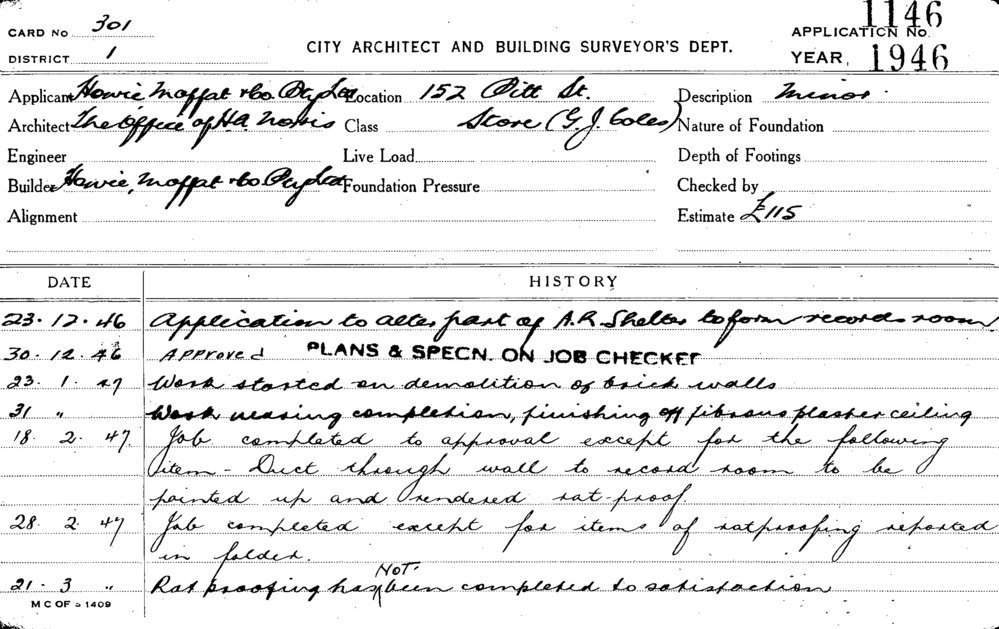 CARD No 301
DISTRICT 1
CITY ARCHITECT AND BUILDING SURVEYOR'S DEPT.
1146
APPLICATION No.
YEAR, 1946
Applicant Howie, Moffat & Co. Pty Ltd Location 152 Pitt St. Description Minor
Architect The Office of H.A. Norris Class Store (G.J. Coles) Nature of Foundation
Engineer Live Load Depth of Footings
Builder Howie, Moffat & Co. Pty Ltd Foundation Pressure Checked by
Alignment Estimate £115
DATE HISTORY
23.12.46 Application to alter part of A.R. Shelter to form records room,
30.12.46 Approved PLANS & SPECN. ON JOB CHECKED
23. 1. 47 Work started on demolition of brick walls
31 " Work nearing completion, finishing off fibrous plaster ceiling
18. 2. 47 Job completed to approval except for the following
item - Duct through wall to record room to be
pointed up and rendered rat-proof.
28. 2. 47 Job completed except for items of ratproofing reported
in folder.
21. 3 " Rat proofing has NOT been completed to satisfaction
M C OF S 1409